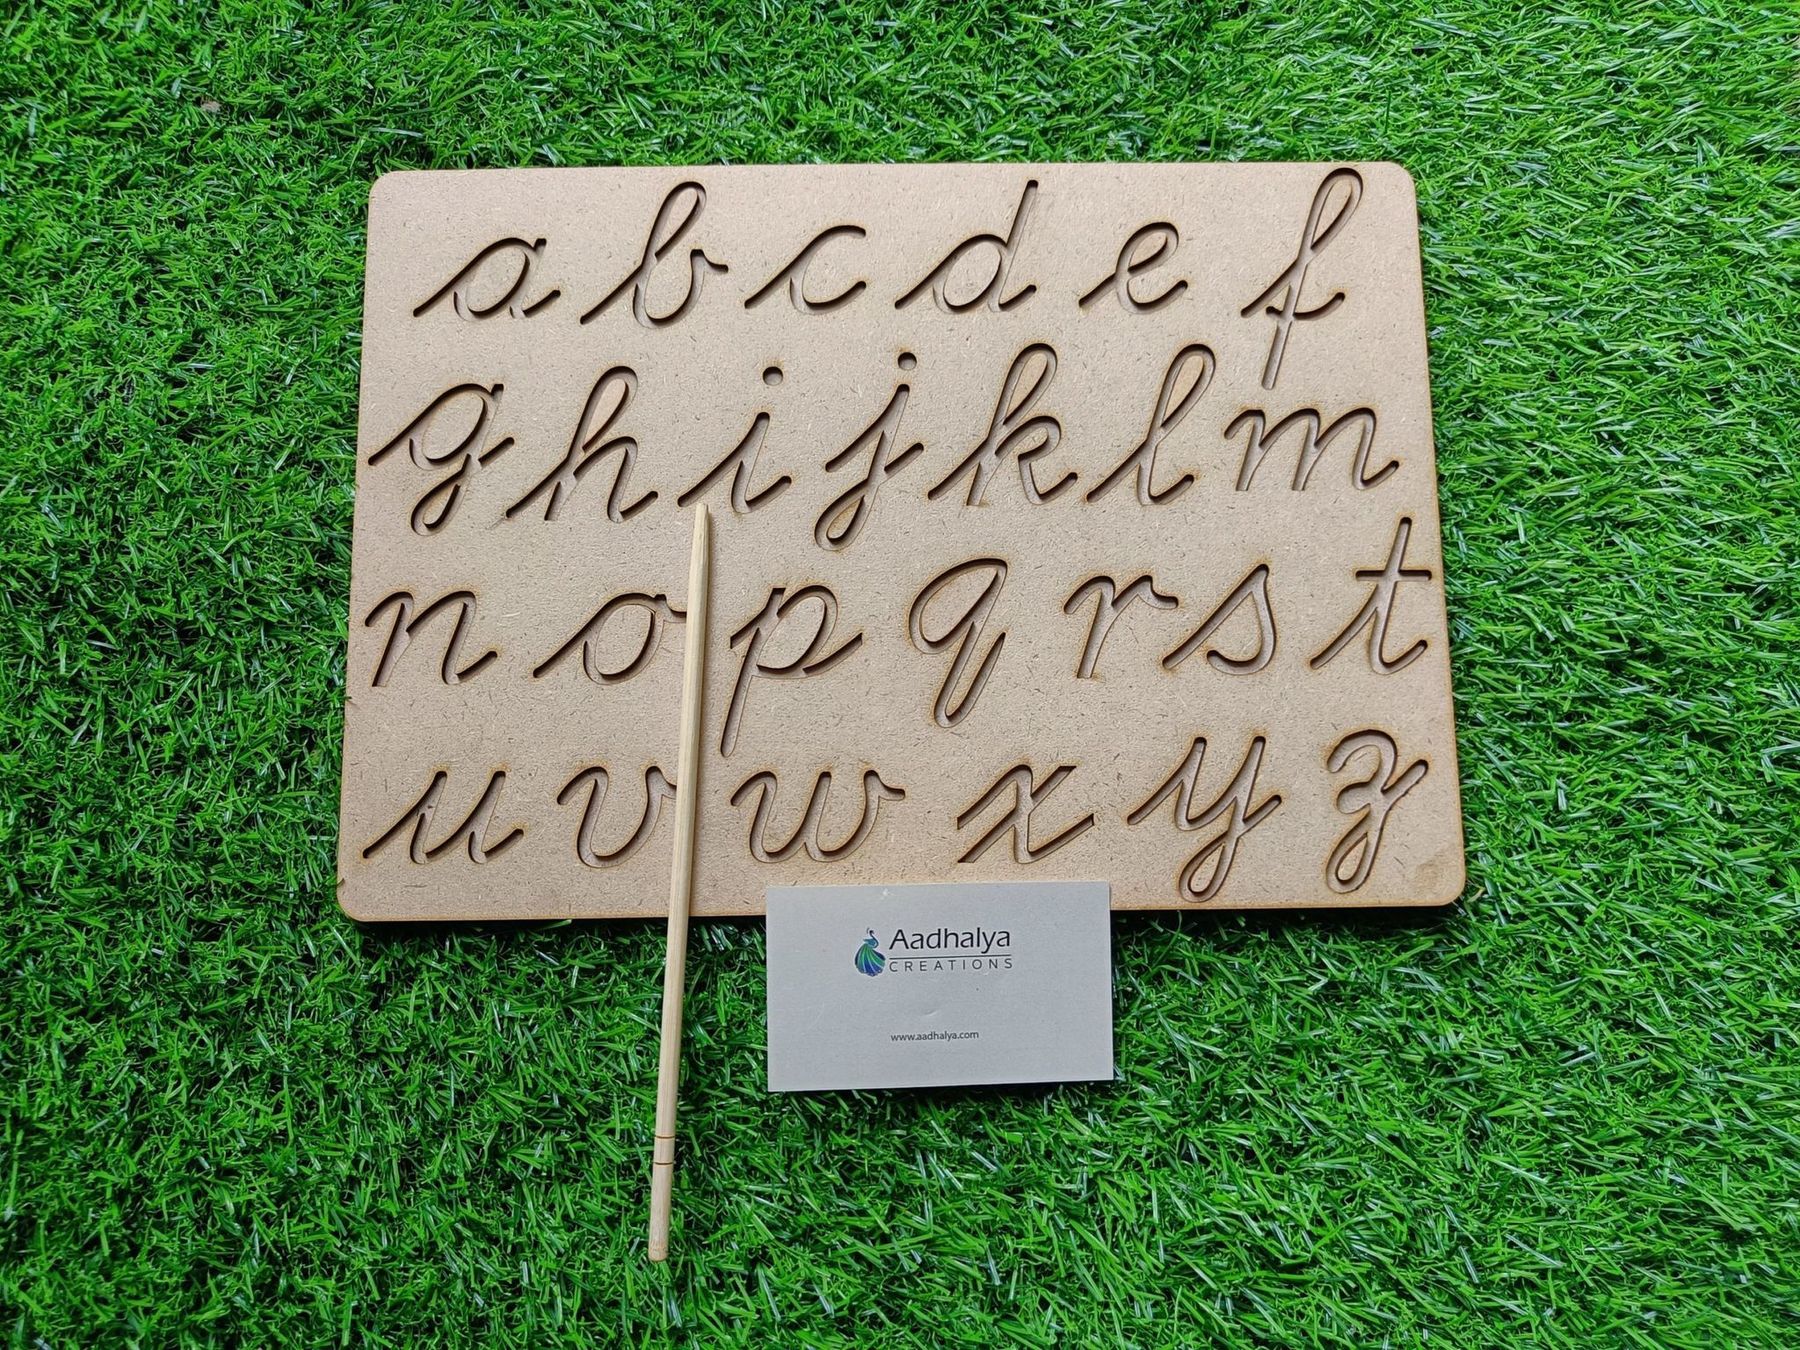 a b c d e f
g h i j k l m
n o p q r s t
u v w x y z
Aadhalya
CREATIONS
www.aadhalya.com